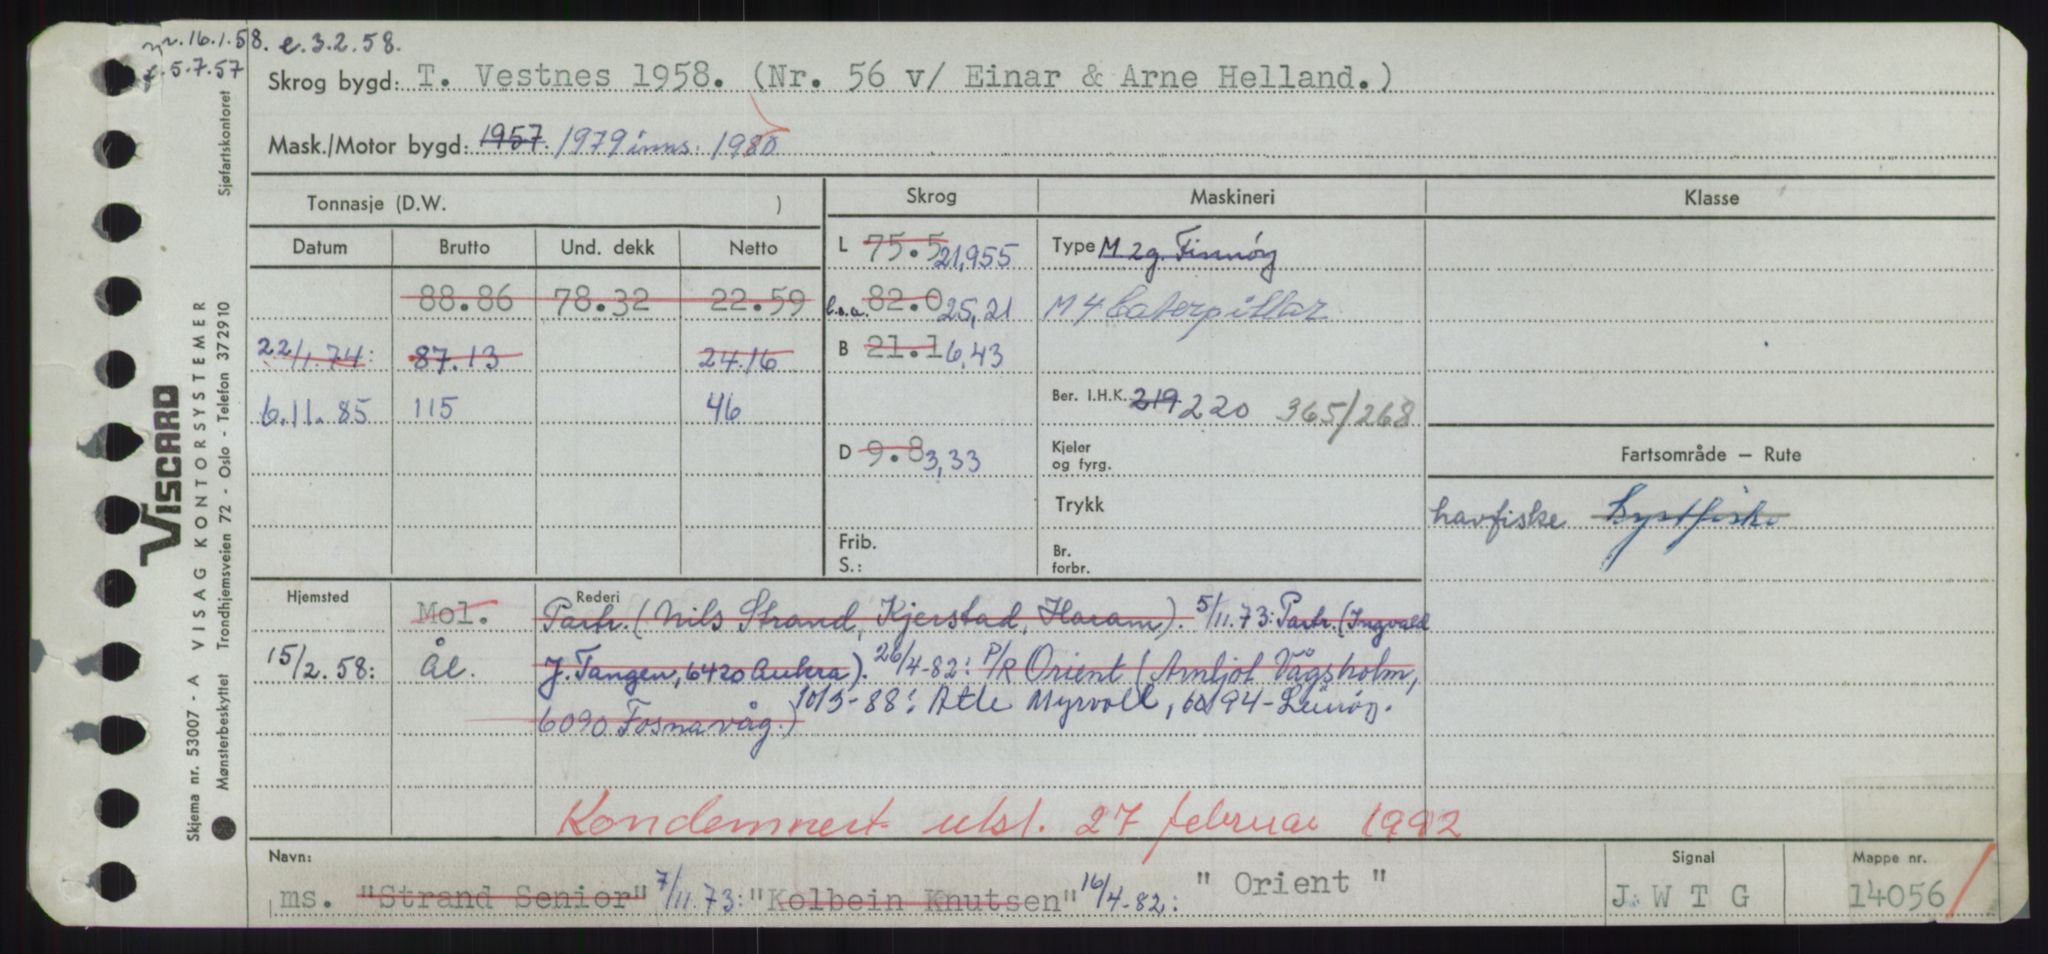 nr. 16.1.58. e. 3.2.58.
f. 5.7.57
Skrog bygd: T. Vestnes 1958. (Nr. 56 v/ Einar & Arne Helland.)
Mask./Motor bygd: 1957. 1979 inns. 1980
Tonnasje (D.W. )
Skrog Maskineri Klasse
Datum Brutto Und. dekk Netto
L 75.5 21,955 Type M 2g. Finnøy
88.86 78.32 22.59 l.o.a. 82.0 25,21 M 4 Caterpillar
22/1.74: 87.13 24.16 B 21.1 6,43
6.11.85 115 46 Ber. I.H.K. 219 220 365/268
D 9.8 3,33 Kjeler og fyrg.
Fartsområde — Rute
Trykk
havfiske Kystfiske
Frib.
S.:
Br. forbr.
Hjemsted Rederi
Mol. Partr. (Nils Strand, Kjerstad, Haram). 5/11.73: Partr. (Ingvald
15/2.58: Ål. J. Tangen, 6420 Aukra). 26/4-82: P/R Orient (Arnljot Vågsholm,
6090 Fosnavåg.) 10/5-88: Atle Myrvoll, 6094-Leinøy.
Kondemnert utsl. 27 februar 1992
Navn: Signal Mappe nr.
ms. "Strand Senior" 7/11.73: "Kolbein Knutsen" 16/4-82: "Orient" J W T G 14056
VISCARD
Skjema nr. 53007 - A VISAG KONTORSYSTEMER
Mønsterbeskyttet Trondhjemsveien 72 - Oslo - Telefon 372910 Sjøfartskontoret